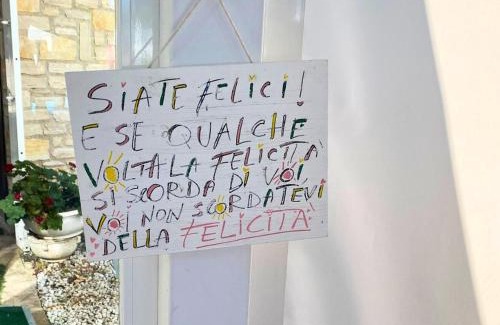 SIATE FELICI!
E SE QUALCHE
VOLTA LA FELICITÀ
SI SCORDA DI VOI
VOI NON SCORDATEVI
DELLA FELICITÀ